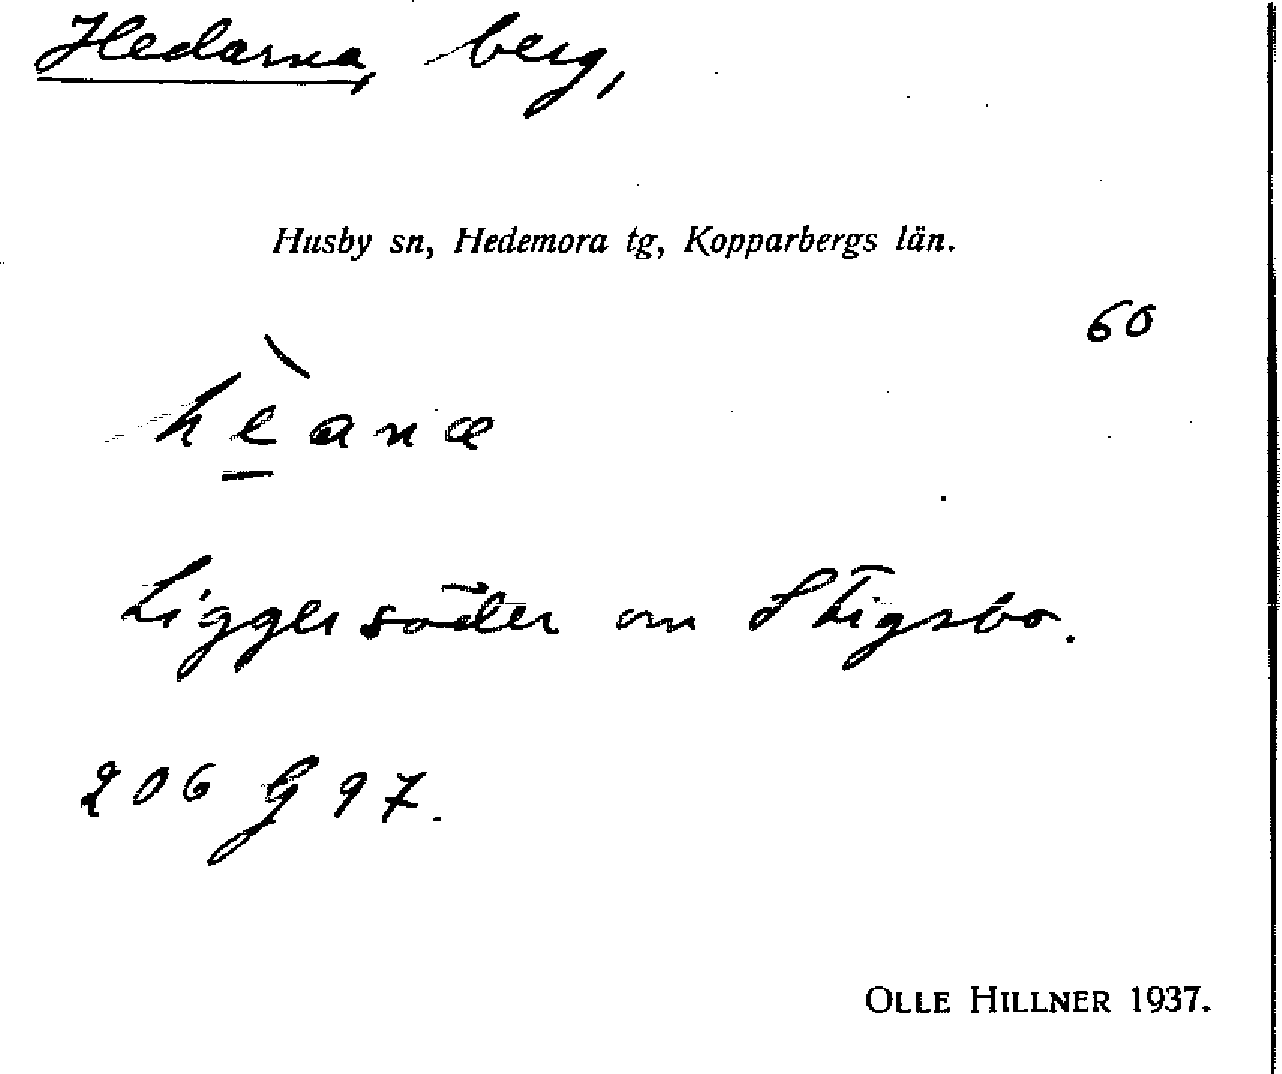 Hedarna, berg,
Husby sn, Hedemora tg, Kopparbergs län.
60
hè̱anæ
Ligger söder om Stigsbo.
206 G 97.
OLLE HILLNER 1937.